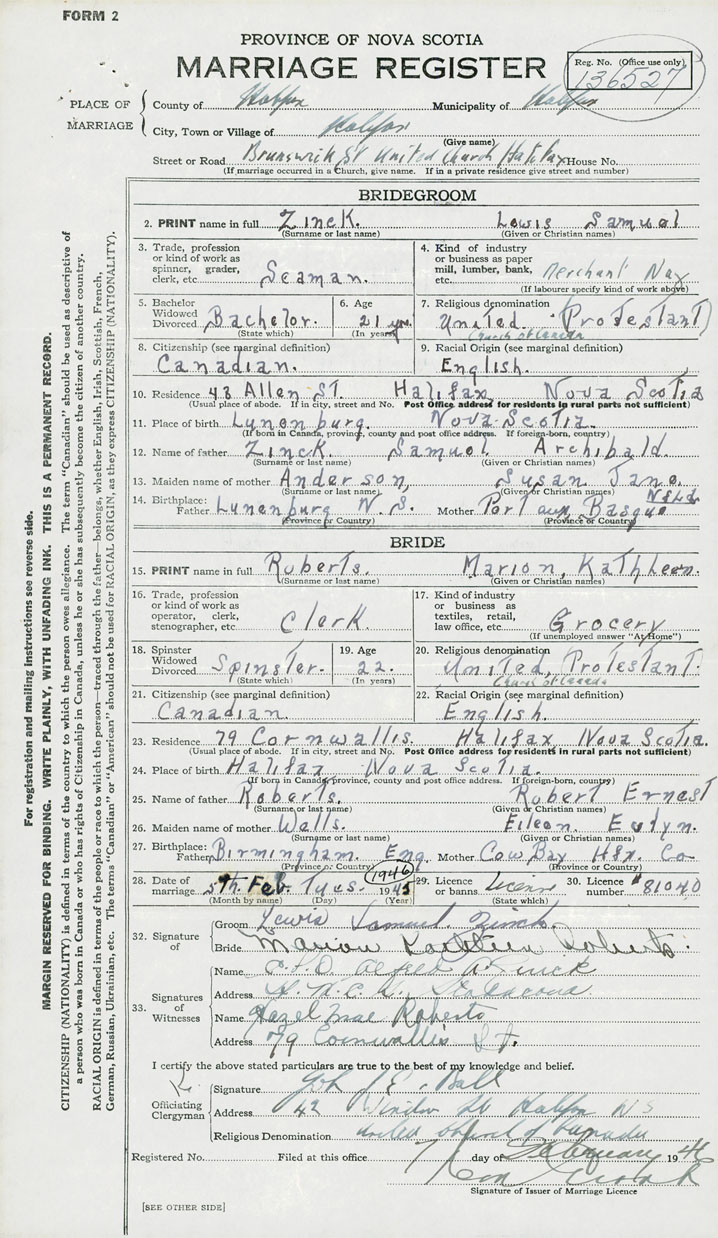 FORM 2
PROVINCE OF NOVA SCOTIA
MARRIAGE REGISTER
Reg. No. (Office use only)
136527
PLACE OF MARRIAGE
County of Halifax Municipality of Halifax
City, Town or Village of Halifax
(Give name)
Street or Road Brunswick St United Church Halifax House No.
(If marriage occurred in a Church, give name. If in a private residence give street and number)
BRIDEGROOM
2. PRINT name in full Zinck. Lewis Samuel
(Surname or last name) (Given or Christian names)
3. Trade, profession or kind of work as spinner, grader, clerk, etc. Seaman.
4. Kind of industry or business as paper mill, lumber, bank, etc. Merchant Nav
(If labourer specify kind of work above)
5. Bachelor Widowed Divorced Bachelor.
(State which)
6. Age 21 yrs.
(In years)
7. Religious denomination United. (Protestant)
Church of Canada
8. Citizenship (see marginal definition) Canadian.
9. Racial Origin (see marginal definition) English.
10. Residence 43 Allen ST. Halifax Nova Scotia
(Usual place of abode. If in city, street and No. Post Office address for residents in rural parts not sufficient)
11. Place of birth Lunenburg. Nova Scotia.
(If born in Canada, province, county and post office address. If foreign-born, country)
12. Name of father Zinck Samuel Archibald.
(Surname or last name) (Given or Christian names)
13. Maiden name of mother Anderson, Susan Jane.
(Surname or last name) (Given or Christian names)
14. Birthplace: Father Lunenburg N.S. Mother Port aux Basque Nfld
(Province or Country) (Province or Country)
BRIDE
15. PRINT name in full Roberts. Marion, Kathleen.
(Surname or last name) (Given or Christian names)
16. Trade, profession or kind of work as operator, clerk, stenographer, etc. Clerk.
17. Kind of industry or business as textiles, retail, law office, etc. Grocery
(If unemployed answer "At Home")
18. Spinster Widowed Divorced Spinster.
(State which)
19. Age 22.
(In years)
20. Religious denomination United, (Protestant.
Church of Canada
21. Citizenship (see marginal definition) Canadian.
22. Racial Origin (see marginal definition) English.
23. Residence 79 Cornwallis. Halifax Nova Scotia.
(Usual place of abode. If in city, street and No. Post Office address for residents in rural parts not sufficient)
24. Place of birth Halifax Nova Scotia.
(If born in Canada, province, county and post office address. If foreign-born, country)
25. Name of father Roberts. Robert Ernest
(Surname or last name) (Given or Christian names)
26. Maiden name of mother Wells. Eileen Evlyn.
(Surname or last name) (Given or Christian names)
27. Birthplace: Father Birmingham. Eng. Mother Cow Bay Hfx. Co
(Province or Country) (Province or Country)
28. Date of marriage 5th. Feb. Tues. 1945 (1946)
(Month by name) (Day) (Year)
29. License or banns License
(State which)
30. Licence number #81040
32. Signature of
Groom Lewis Samuel Zinck.
Bride Marion Kathleen Roberts.
33. Signatures of Witnesses
Name Alfred A. Zinck
Address Stadacona
Name Hazel Mae Roberts
Address 79 Cornwallis St.
I certify the above stated particulars are true to the best of my knowledge and belief.
Officiating Clergyman
Signature Ball
Address 42 Halifax NS
Religious Denomination United Church of Canada
Registered No. Filed at this office 7 day of February 1946
Signature of Issuer of Marriage Licence
[SEE OTHER SIDE]
For registration and mailing instructions see reverse side.
MARGIN RESERVED FOR BINDING. WRITE PLAINLY, WITH UNFADING INK. THIS IS A PERMANENT RECORD.
CITIZENSHIP (NATIONALITY) is defined in terms of the country to which the person owes allegiance. The term "Canadian" should be used as descriptive of
a person who was born in Canada or who has rights of Citizenship in Canada, unless he or she has subsequently become the citizen of another country.
RACIAL ORIGIN is defined in terms of the people or race to which the person—traced through the father—belongs, whether English, Irish, Scottish, French,
German, Russian, Ukrainian, etc. The terms "Canadian" or "American" should not be used for RACIAL ORIGIN, as they express CITIZENSHIP (NATIONALITY).